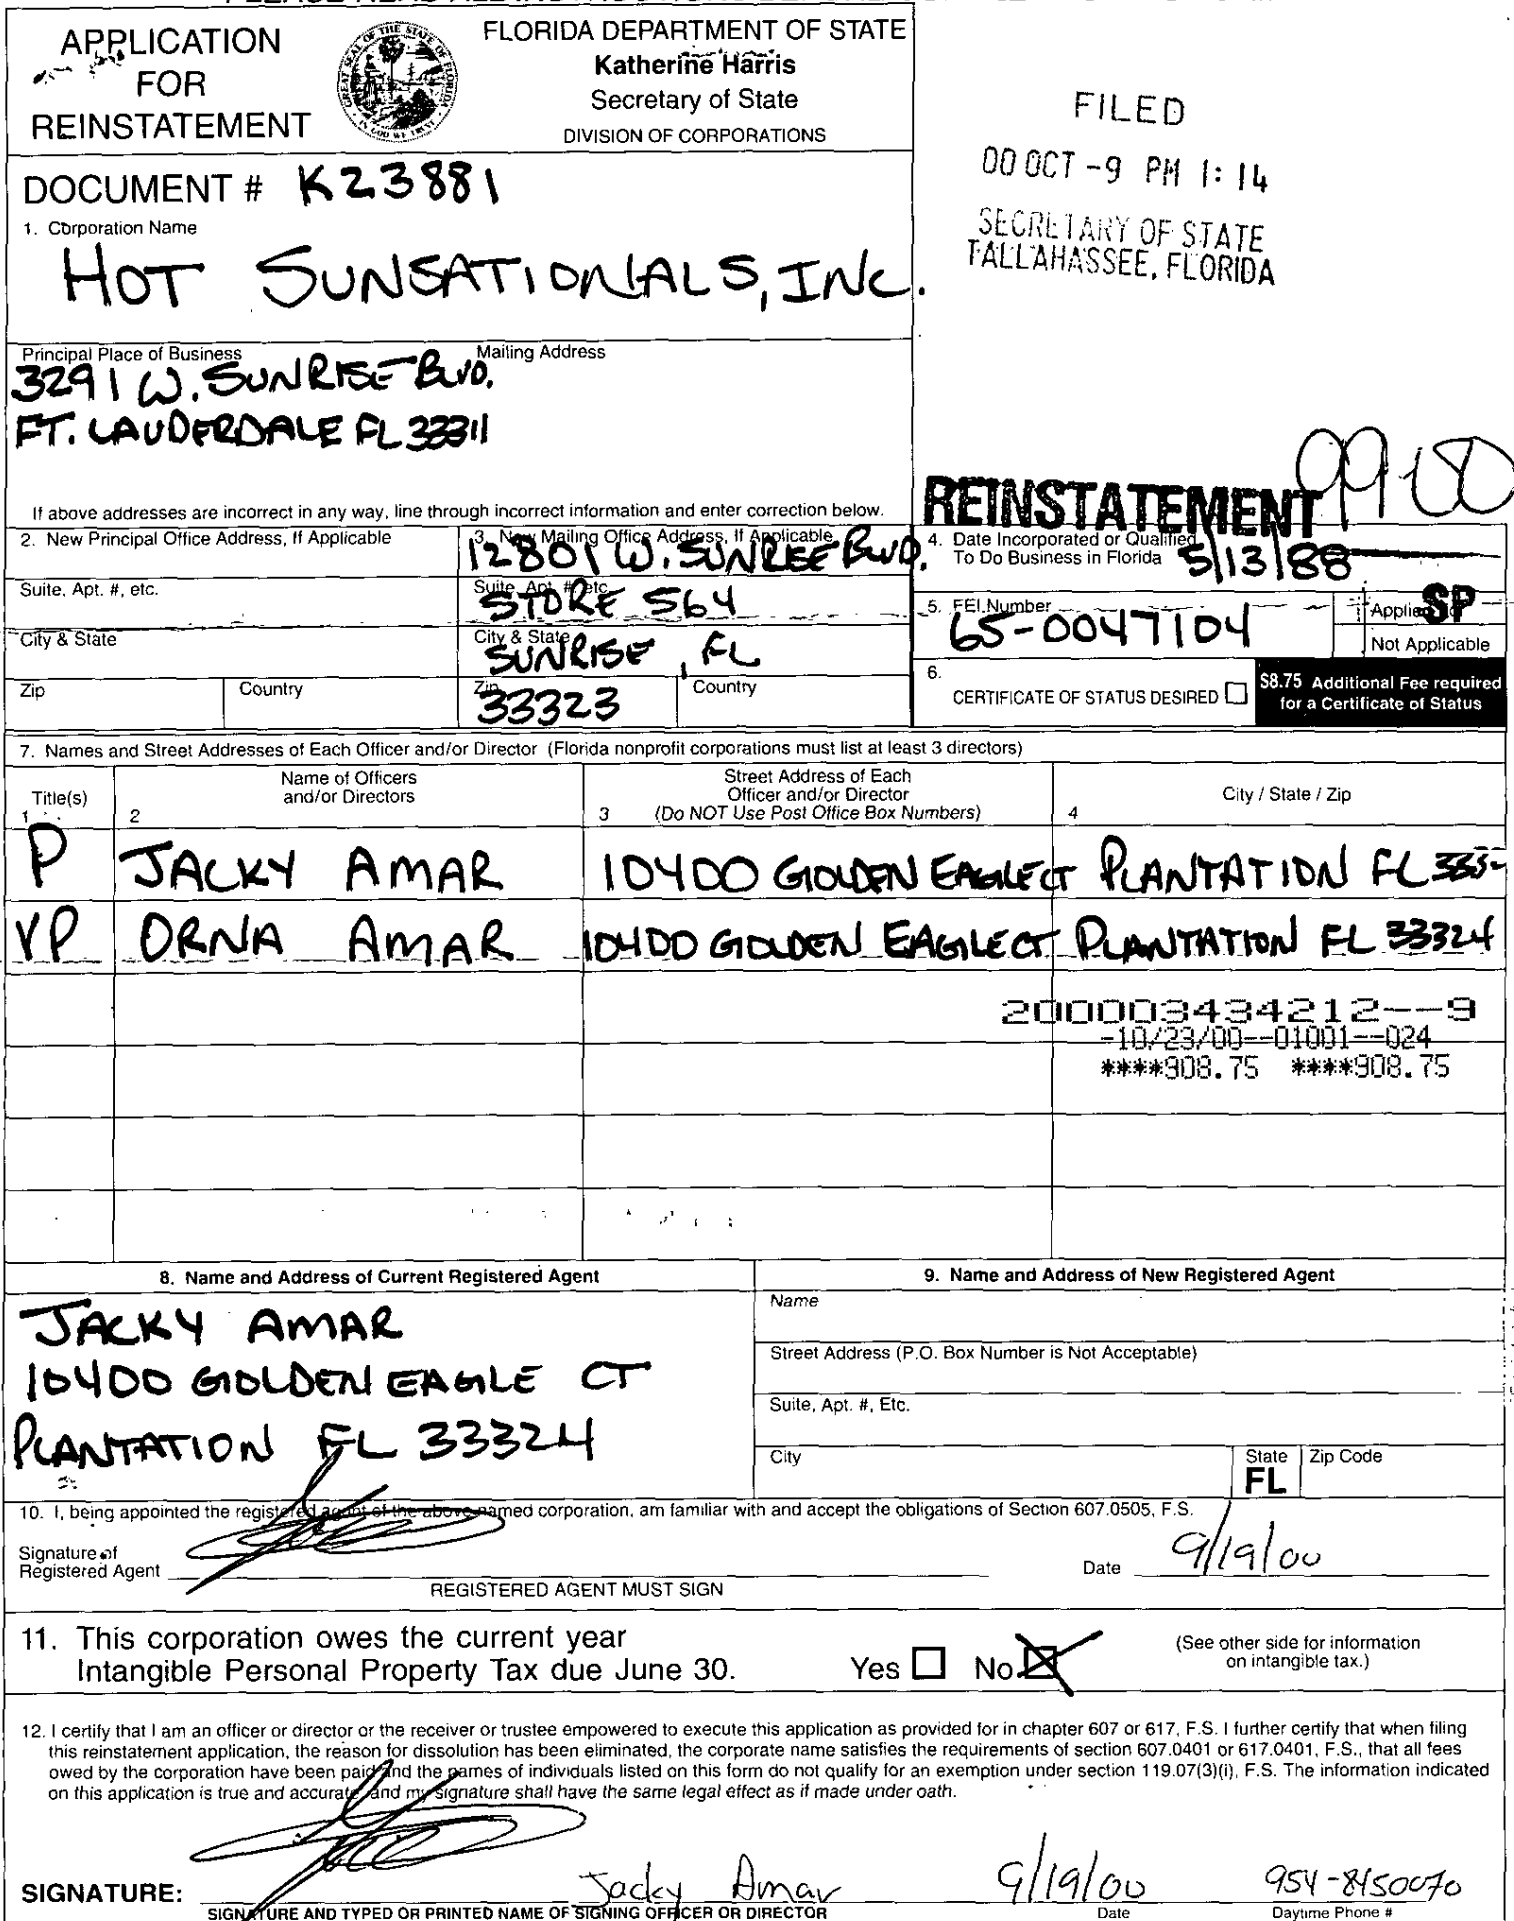 APPLICATION
FOR
REINSTATEMENT
FLORIDA DEPARTMENT OF STATE
Katherine Harris
Secretary of State
DIVISION OF CORPORATIONS
FILED
00 OCT -9 PM 1:14
SECRETARY OF STATE
TALLAHASSEE, FLORIDA
DOCUMENT # K23881
1. Corporation Name
HOT SUNSATIONALS, INC.
Principal Place of Business
Mailing Address
3291 W. SUNRISE BLVD.
FT. LAUDERDALE FL 33311
If above addresses are incorrect in any way, line through incorrect information and enter correction below.
REINSTATEMENT
2. New Principal Office Address, If Applicable
3. New Mailing Office Address, If Applicable
12801 W. SUNRISE BLVD.
4. Date Incorporated or Qualified
To Do Business in Florida
5/13/88
Suite, Apt. #, etc.
Suite, Apt. #, etc.
STORE 564
5. FEI Number
65-0047104
SP
Not Applicable
City & State
City & State
SUNRISE, FL
Zip
Country
Zip
33323
Country
6.
CERTIFICATE OF STATUS DESIRED
$8.75 Additional Fee required
for a Certificate of Status
7. Names and Street Addresses of Each Officer and/or Director (Florida nonprofit corporations must list at least 3 directors)
Title(s)
1
Name of Officers
and/or Directors
2
Street Address of Each
Officer and/or Director
3 (Do NOT Use Post Office Box Numbers)
City / State / Zip
4
P JACKY AMAR 10400 GOLDEN EAGLE CT PLANTATION FL
VP ORNA AMAR 10400 GOLDEN EAGLE CT PLANTATION FL 33324
200003434212--9
-10/23/00--01001--024
****908.75 ****908.75
8. Name and Address of Current Registered Agent
JACKY AMAR
10400 GOLDEN EAGLE CT
PLANTATION FL 33324
9. Name and Address of New Registered Agent
Name
Street Address (P.O. Box Number is Not Acceptable)
Suite, Apt. #, Etc.
City
State
FL
Zip Code
10. I, being appointed the registered agent of the above named corporation, am familiar with and accept the obligations of Section 607.0505, F.S.
Signature of
Registered Agent
Date 9/19/00
REGISTERED AGENT MUST SIGN
11. This corporation owes the current year
Intangible Personal Property Tax due June 30.
Yes No
(See other side for information
on intangible tax.)
12. I certify that I am an officer or director or the receiver or trustee empowered to execute this application as provided for in chapter 607 or 617, F.S. I further certify that when filing
this reinstatement application, the reason for dissolution has been eliminated, the corporate name satisfies the requirements of section 607.0401 or 617.0401, F.S., that all fees
owed by the corporation have been paid and the names of individuals listed on this form do not qualify for an exemption under section 119.07(3)(i), F.S. The information indicated
on this application is true and accurate and my signature shall have the same legal effect as if made under oath.
SIGNATURE:
Jacky Amar 9/19/00 954-8450070
SIGNATURE AND TYPED OR PRINTED NAME OF SIGNING OFFICER OR DIRECTOR
Date
Daytime Phone #